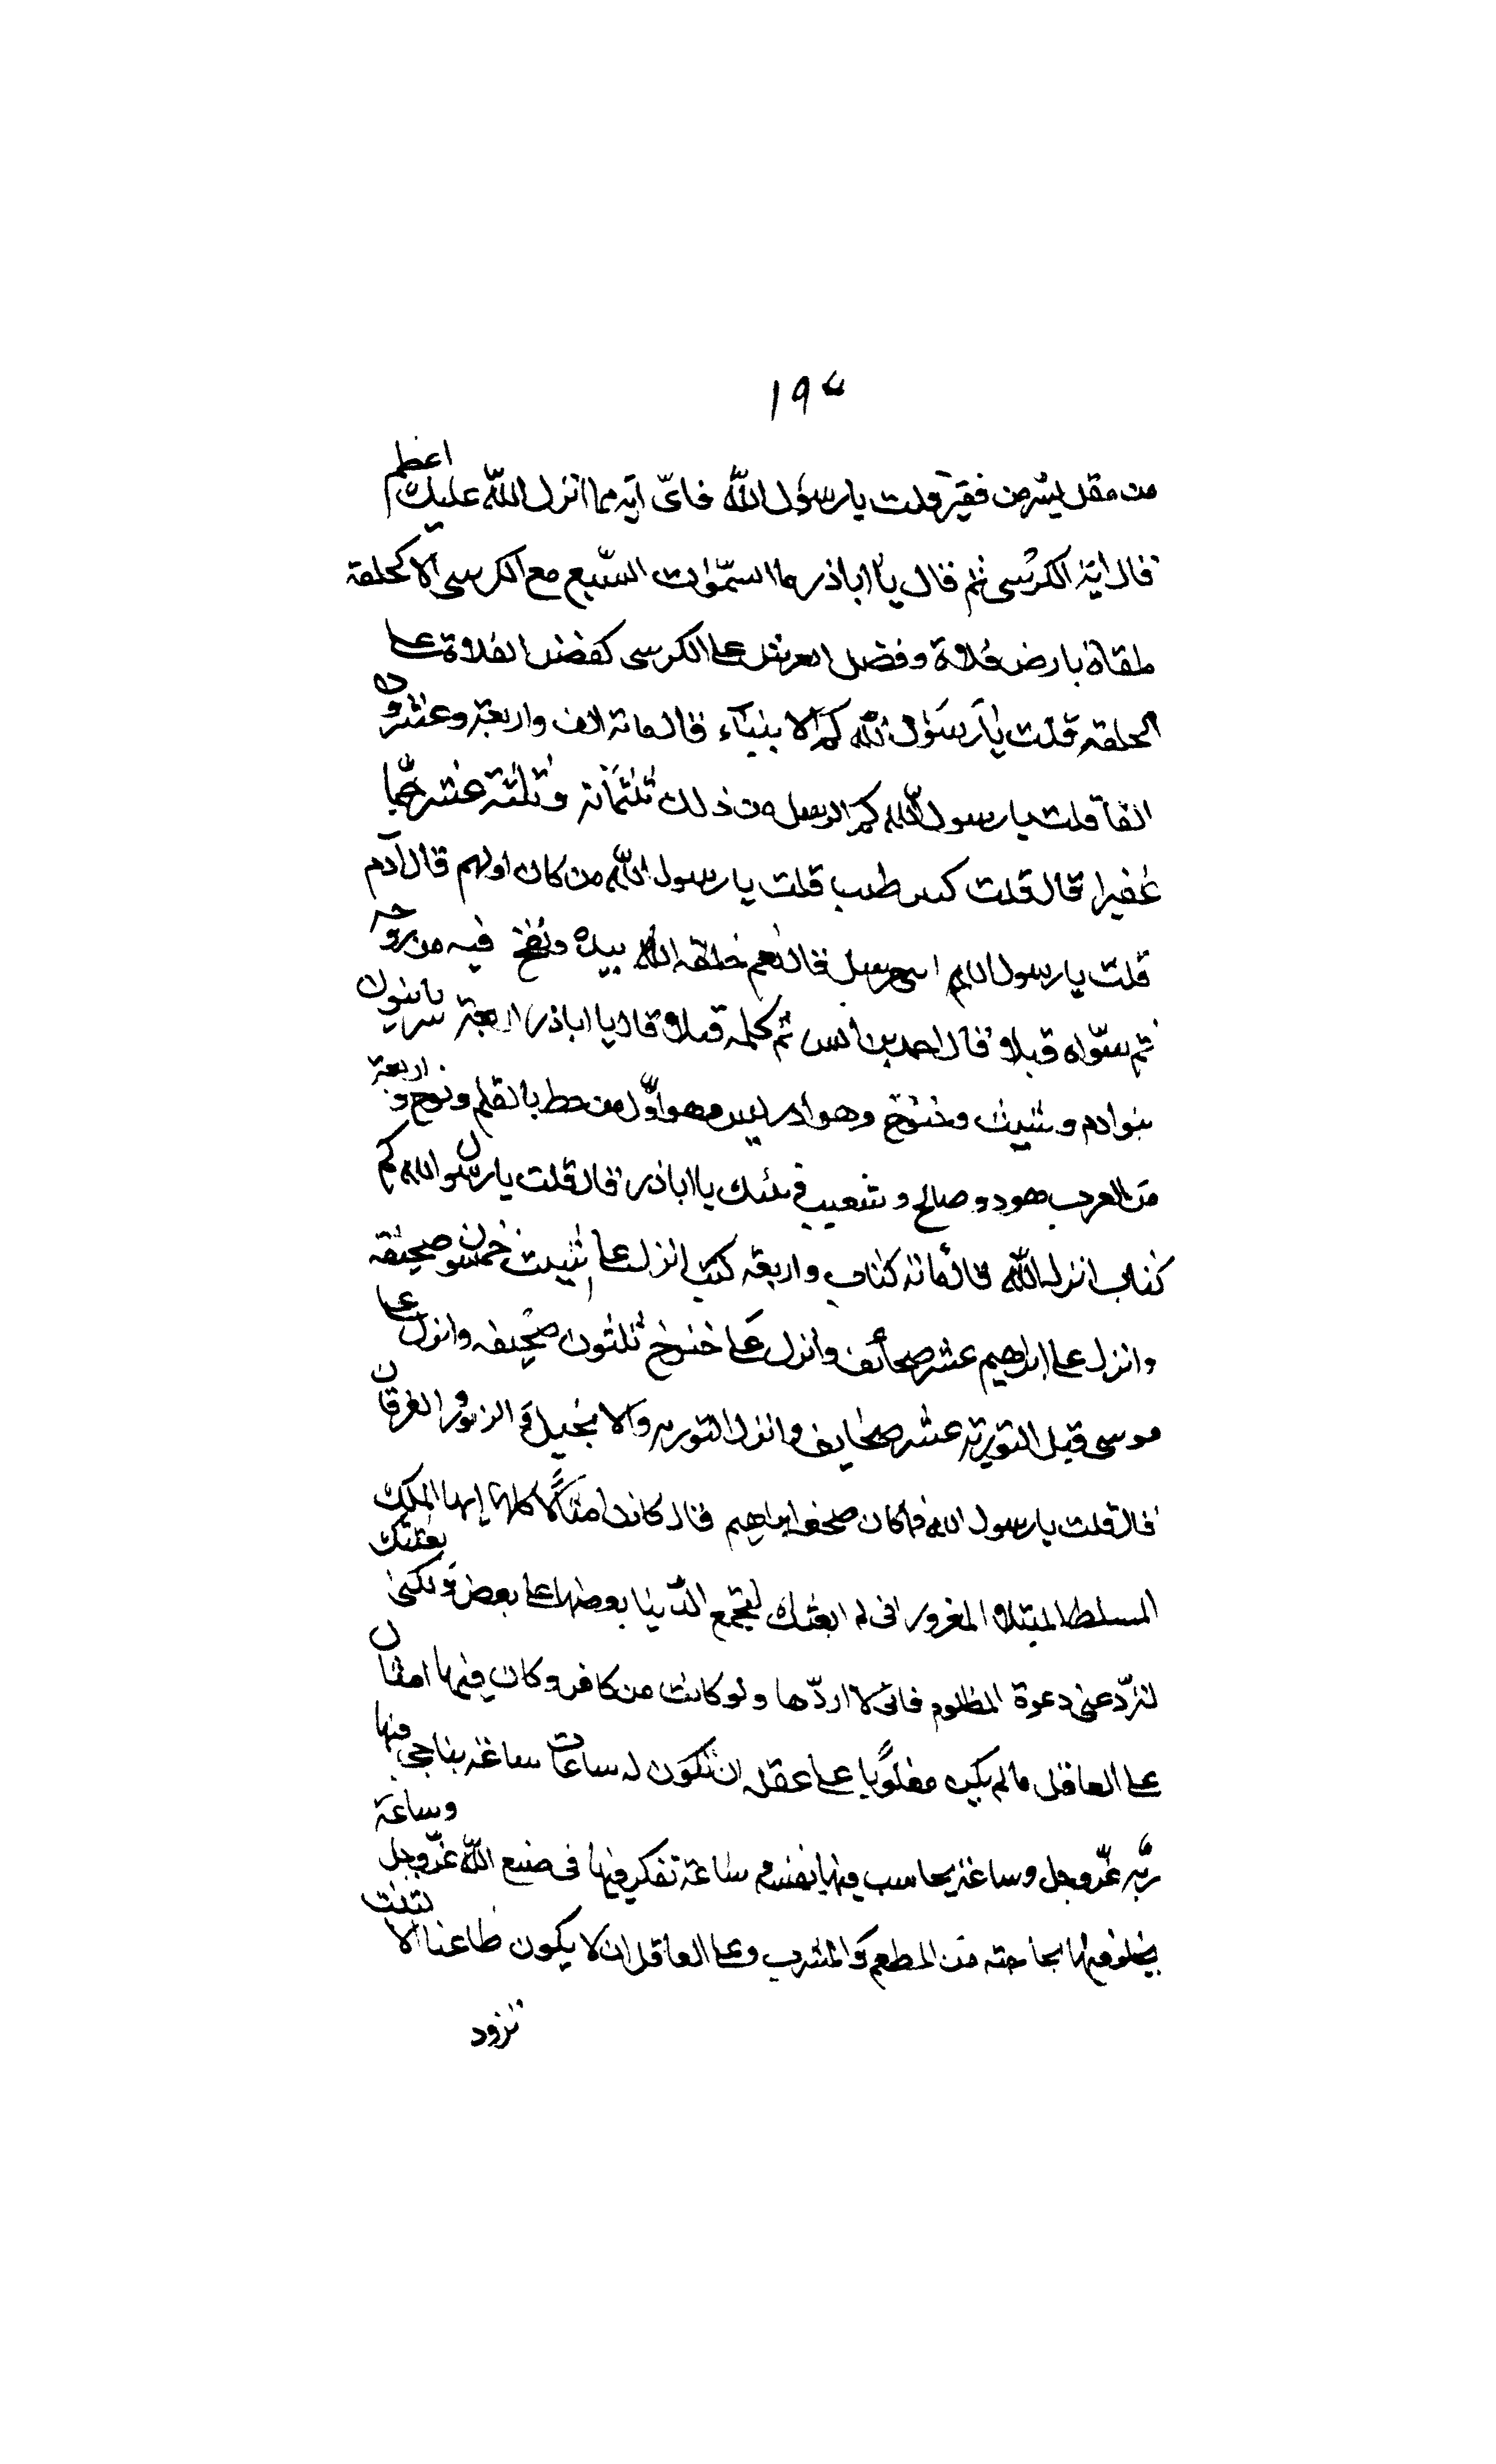 ١٩٤
من مقل يسر من فقير قلت يا رسول الله فاىّ آية مما انزل الله عليك اعظم
قال اية الكرسى ثم قال يا اباذر ما السّموٰت السّبع مع الكرسى الا كحلقة
ملقاة بارض فلاة وفضل العرش على الكرسى كفضل الفلاة على
الحلقة قلت يا رسول الله كم الانبيآء قال مائة الف واربعة وعشرون
الفا قلت يا رسول الله كم الرسل من ذلك ثلثمائة وثلثة عشر جمّا
غفيرا قال قلت كثير طيب قلت يا رسول الله من كان اولهم قال آدم
قلت يا رسول الله انبى مرسل قال نعم خلقه الله بيده ونفخ فيه من روحه
ثم سوّاه قبلا وقال احمد بن انس ثم كلمه قبلا وقال يا اباذر اربعة سريانيون
ادم وشيث وخنوخ وهو ادريس وهو اوّل من خط بالقلم ونوح واربعة
من العرب هود وصالح وشعيب ونبيك يا اباذر قال قلت يا رسول الله كم
كتاب انزله الله قال مائة كتاب واربعة كتب انزل على شيث خمسون صحيفة
وانزل على ابراهيم عشر صحائف وانزل على خنوخ ثلثون صحيفه وانزل على
موسى قبل التورية عشر صحايف وانزل التوريه والانجيل والزبور والفرقان
قال قلت يا رسول الله فما كان صحف ابراهيم قال كانت امثالًا كلها ايها الملك
المسلط المبتلا المغرور انى لم ابعثك لتجمع الدّنيا بعضها على بعض ولكنى بعثتك
لتردّ عنى دعوة المظلوم فانى لا اردّها ولو كانت من كافر وكان فيها امثال
على العاقل ما لم يكن مغلوبًا على عقله ان تكون له ساعات ساعة يناجى فيها
ربّه عزّ وجل وساعة يحاسب فيها نفسه وساعة تفكر فيها فى صنع الله عزّ وجل وساعة
يخلو فيها لحاجته من المطعم والمشرب وعلى العاقل ان لا يكون ظاعنا الا لثلث
تزود